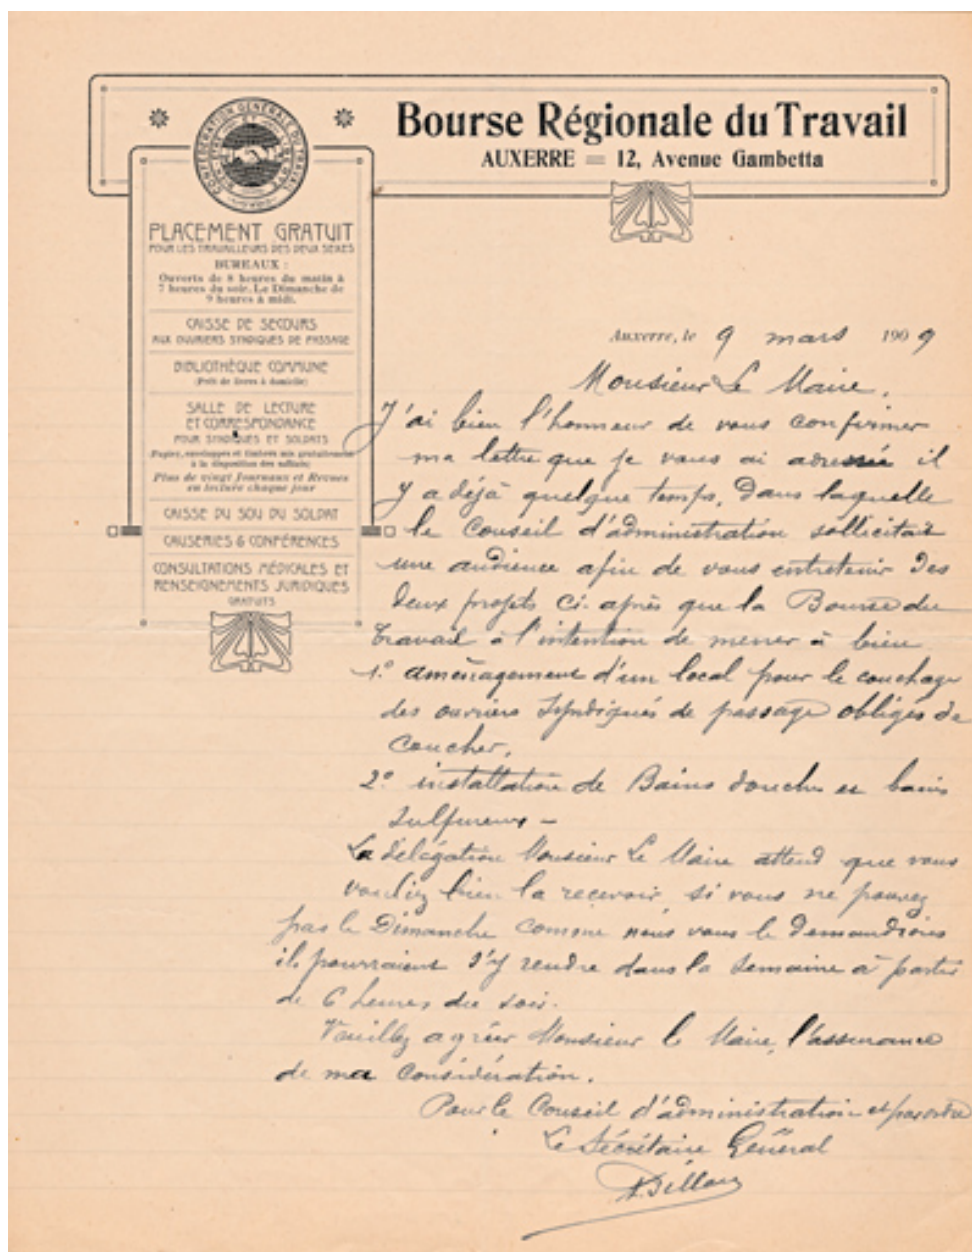 Bourse Régionale du Travail
AUXERRE = 12, Avenue Gambetta
CONFÉDÉRATION GÉNÉRALE DU TRAVAIL
PLACEMENT GRATUIT
POUR LES TRAVAILLEURS DES DEUX SEXES
BUREAUX :
Ouverts de 8 heures du matin à
7 heures du soir. Le Dimanche de
9 heures à midi.
CAISSE DE SECOURS
AUX OUVRIERS SYNDIQUÉS DE PASSAGE
BIBLIOTHÈQUE COMMUNE
(Prêt de livres à domicile)
SALLE DE LECTURE
ET CORRESPONDANCE
POUR SYNDIQUÉS ET SOLDATS
(Papier, enveloppes et timbres mis gratuitement
à la disposition des soldats)
Plus de vingt Journaux et Revues
en lecture chaque jour
CAISSE DU SOU DU SOLDAT
CAUSERIES & CONFÉRENCES
CONSULTATIONS MÉDICALES ET
RENSEIGNEMENTS JURIDIQUES
GRATUITS
Auxerre, le 9 mars 1909
Monsieur Le Maire,
J'ai bien l'honneur de vous confirmer
ma lettre que je vous ai adressée il
y a déjà quelque temps, dans laquelle
le Conseil d'administration sollicitait
une audience afin de vous entretenir des
deux projets ci-après que la Bourse du
Travail à l'intention de mener à bien
1º aménagement d'un local pour le couchage
des ouvriers Syndiqués de passage obligés de
coucher,
2º installation de Bains douches et bains
sulfureux –
La délégation Monsieur Le Maire attend que vous
vouliez bien la recevoir si vous ne pouvez
pas le Dimanche comme nous vous le demandions
ils pourraient s'y rendre dans la semaine à partir
de 6 heures du soir.
Veuillez agréer Monsieur le Maire, l'assurance
de ma considération.
Pour le Conseil d'administration et par ordre
Le Sécrétaire Général